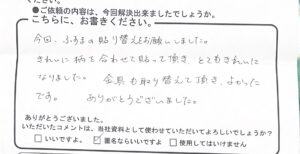 ください。
●ご依頼の内容は、今回解決出来ましたでしょうか。
こちらに、お書きください。
今回、ふすまの貼り替えお願いしました。
きれいに柄を合わせて貼って頂き とてもきれいに
なりました。 金具も取り替えて頂き、よかった
です。 ありがとうございました。
ありがとうございました。
いただいたコメントは、当社資料として使わせていただいてよろしいでしょうか？
□いいですよ。 ☑匿名ならいいですよ □使用してはいけません